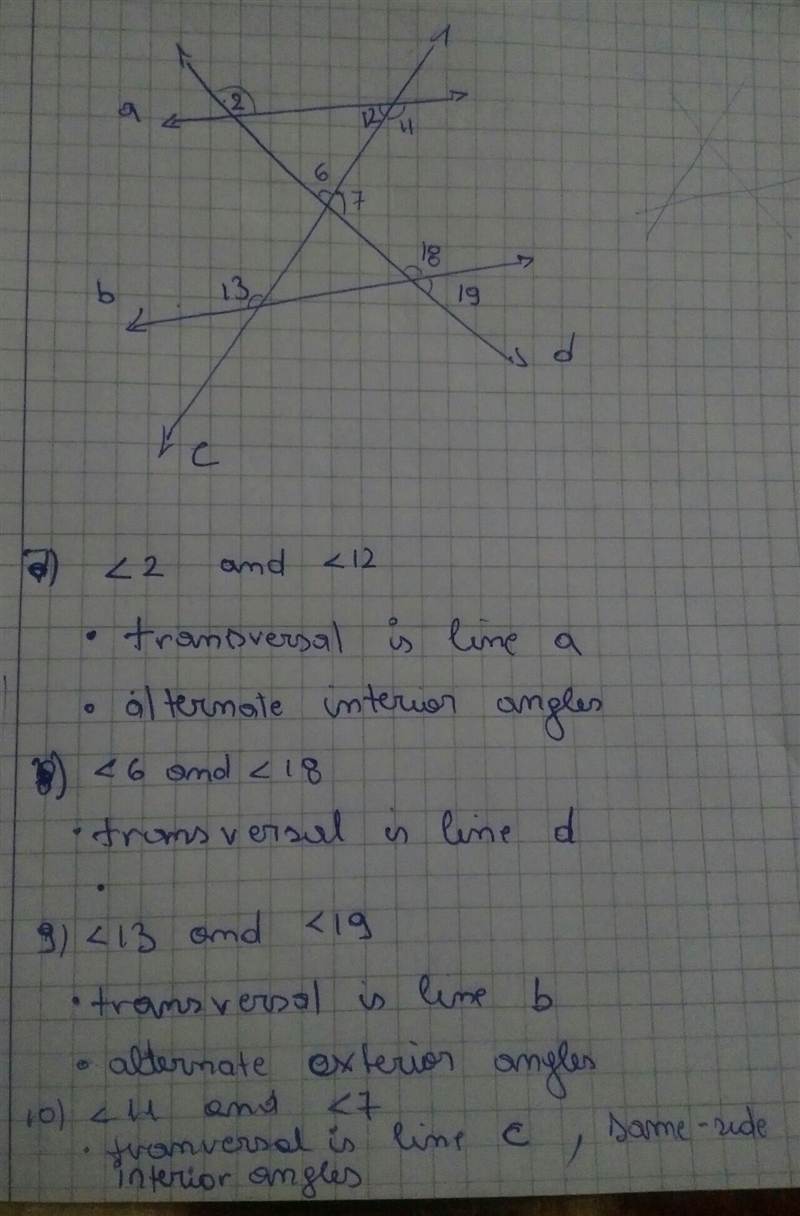 a
2
12
11
6
7
18
b
13
19
d
c
7) <2 and <12
• transversal is line a
• alternate interior angles
8) <6 and <18
• transversal is line d
•
9) <13 and <19
• transversal is line b
• alternate exterior angles
10) <11 and <7
• tranversal is line c, same-side
interior angles